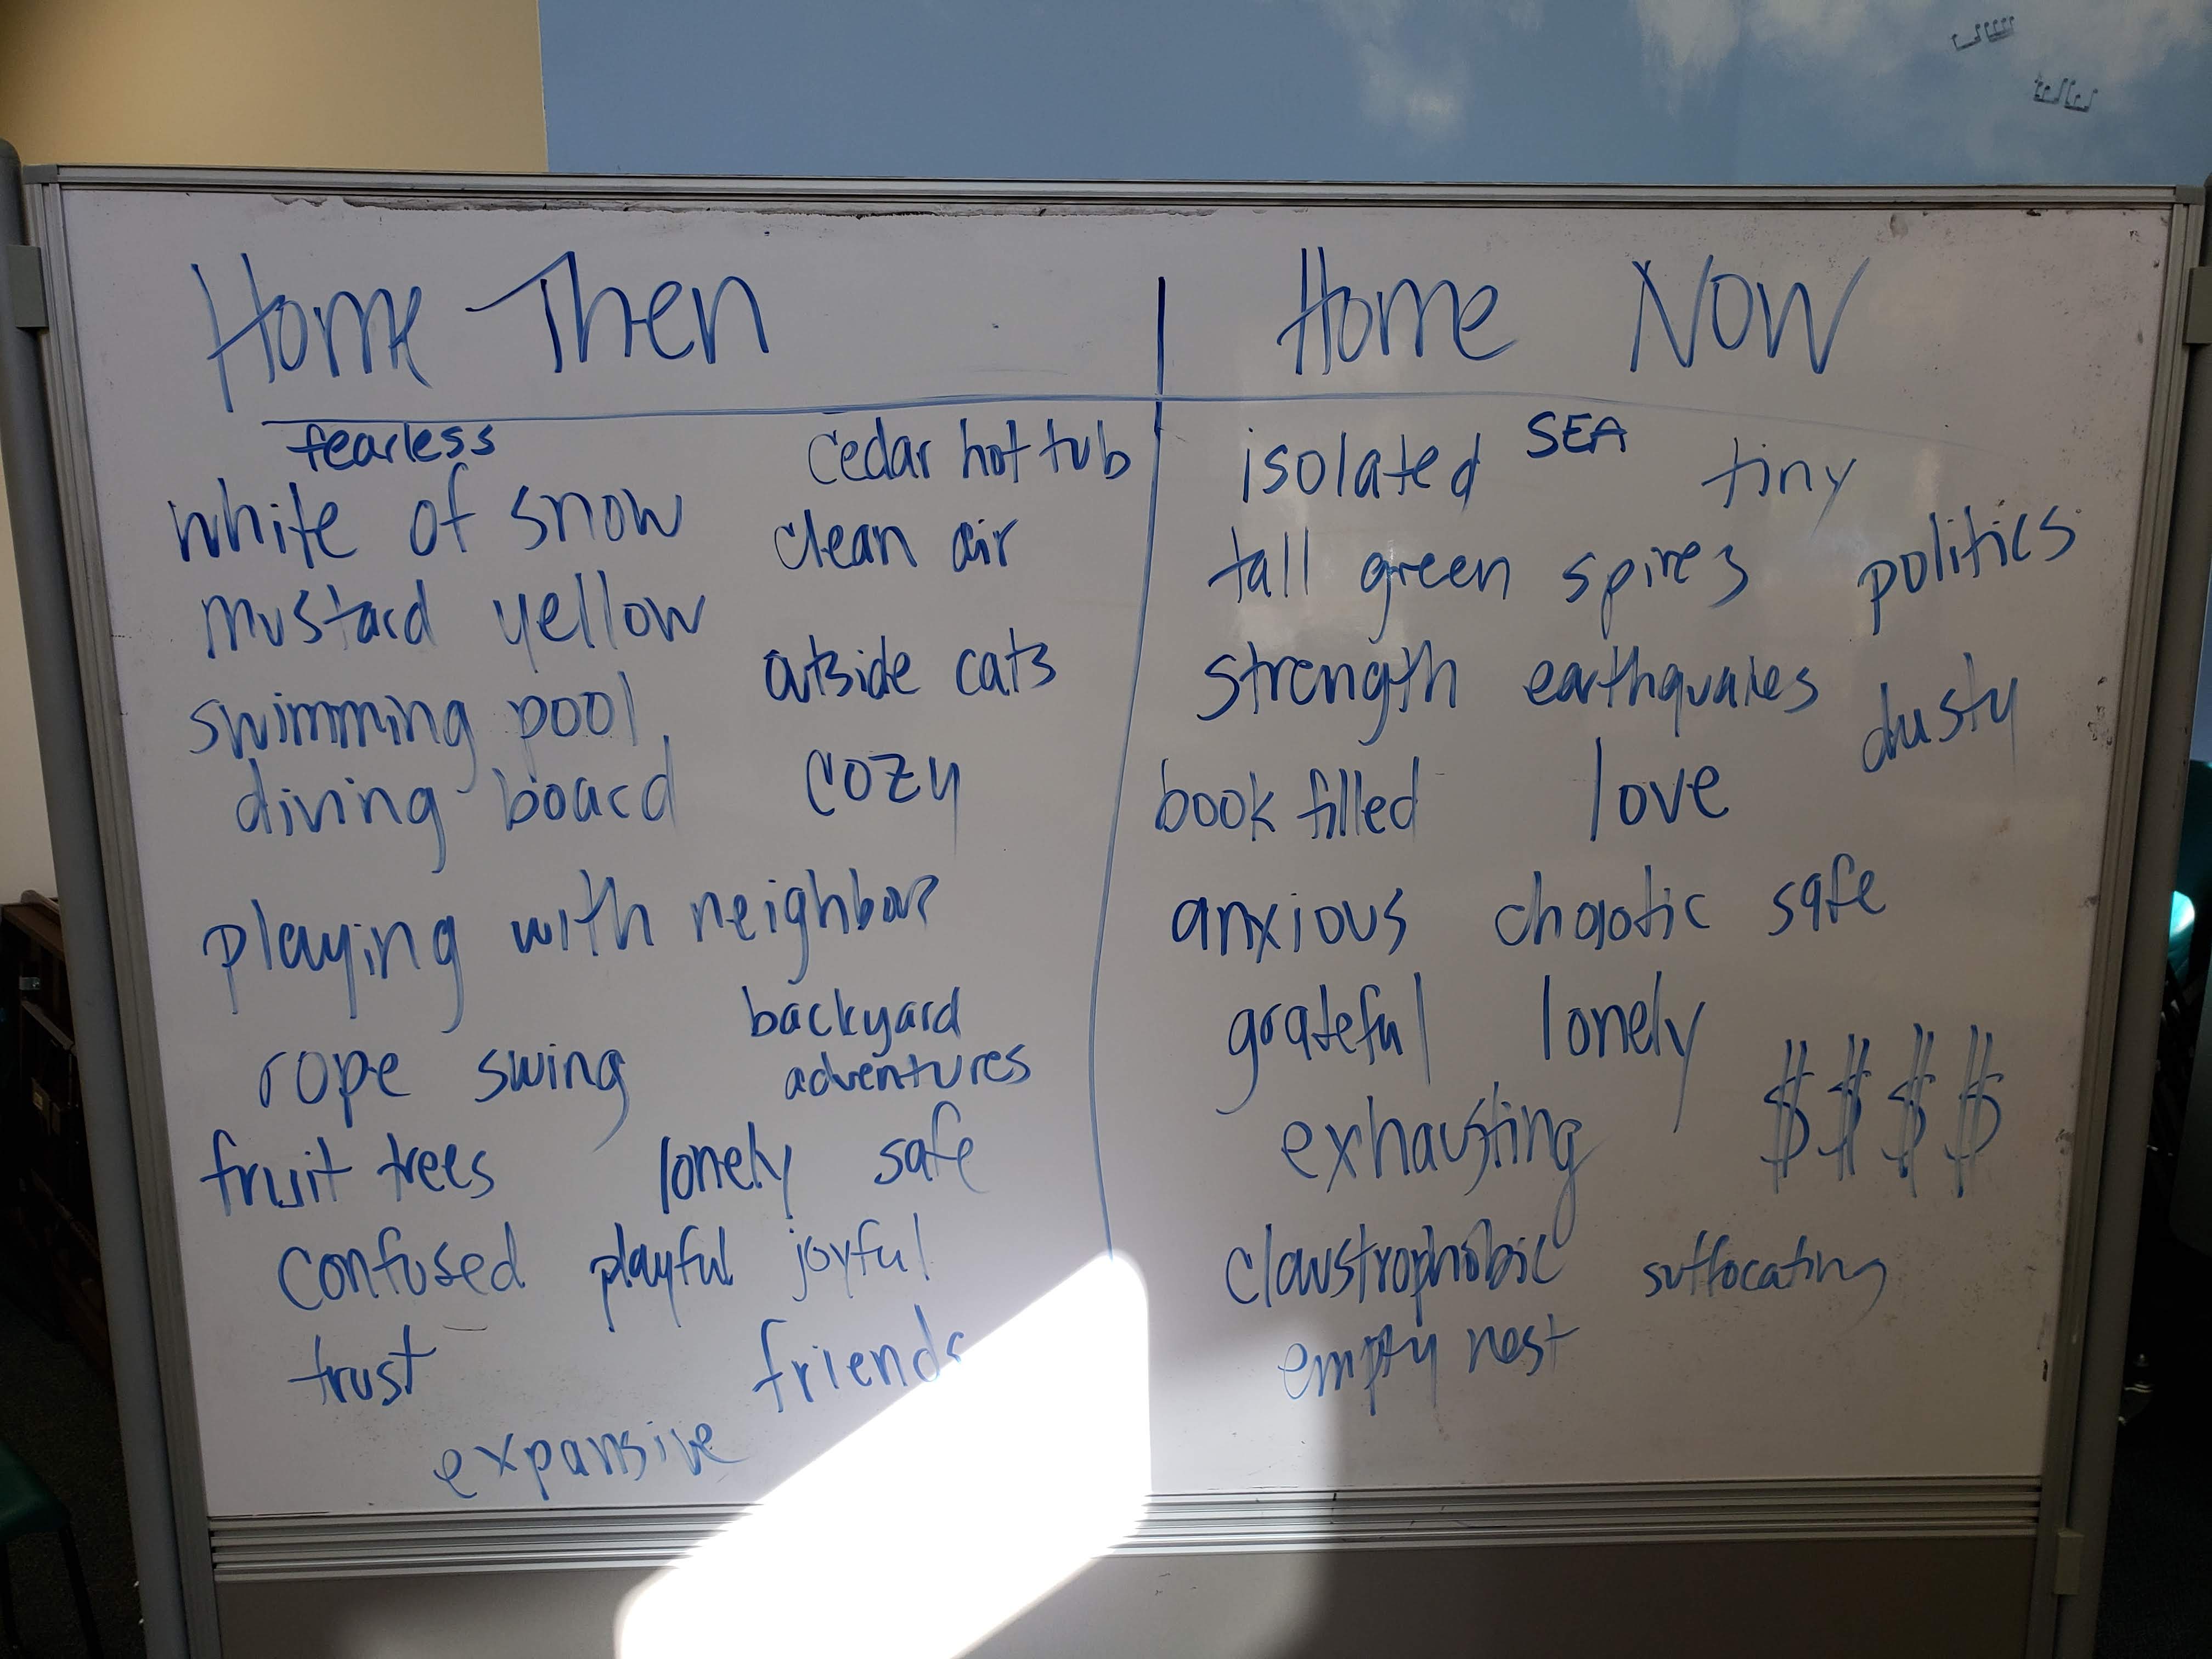 Home Then
fearless
cedar hot tub
white of snow
clean air
mustard yellow
outside cats
swimming pool
diving board
cozy
playing with neighbors
backyard
adventures
rope swing
fruit trees
lonely
safe
confused
playful
joyful
trust
friends
expansive
Home Now
isolated
SEA
tiny
tall green spires
politics
strength
earthquakes
dusty
book filled
love
anxious
chaotic
safe
grateful
lonely
exhausting
$$$$
claustrophobic
suffocating
empty nest